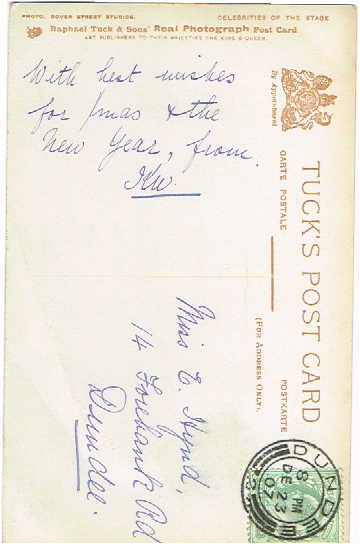 PHOTO, DOVER STREET STUDIOS.
CELEBRITIES OF THE STAGE
Raphael Tuck & Sons' Real Photograph Post Card
ART PUBLISHERS TO THEIR MAJESTIES THE KING & QUEEN.
With best wishes
for Xmas & the
New Year, from
KW.
By Appointment
TUCK'S POST CARD
CARTE POSTALE
POSTKARTE
(FOR ADDRESS ONLY).
Miss E. Hynd,
14 Forebank Rd
Dundee.
DUNDEE
8 PM
DE 23
07